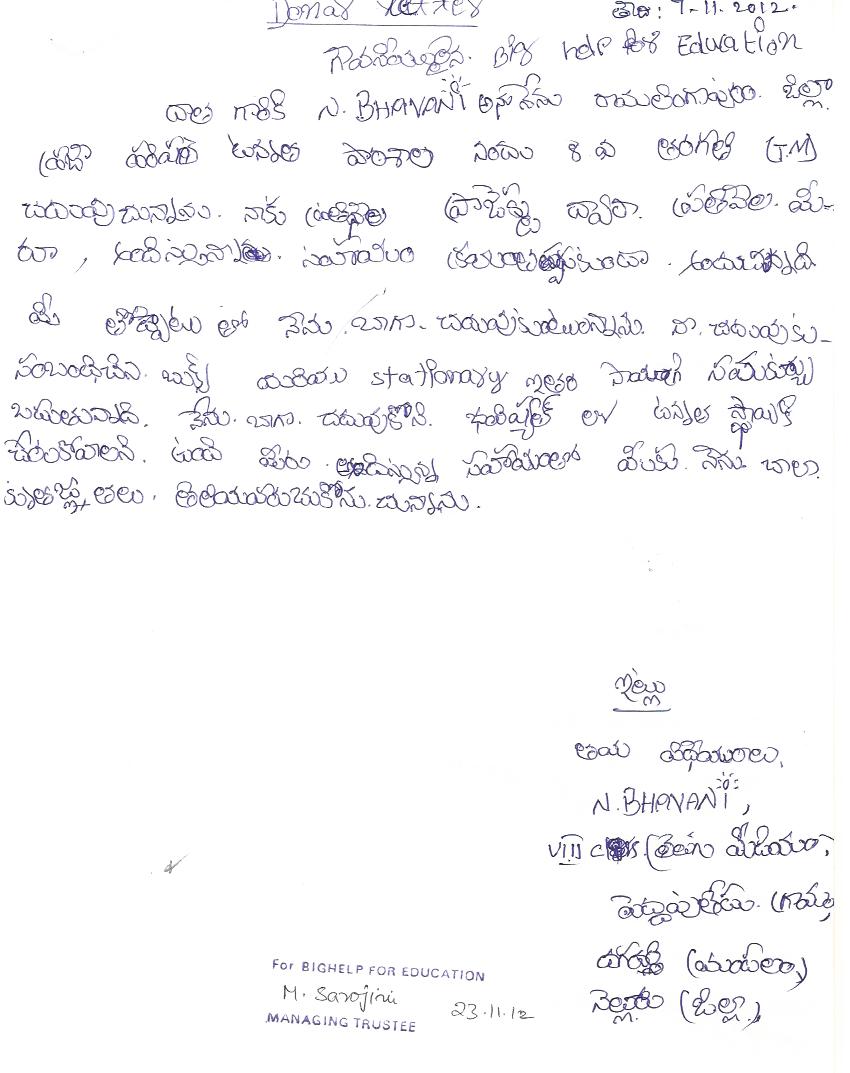 Donar Letter
తేది: 7-11-2012.
గౌరవనీయులైన. Big help for Education
దాత గారికి N. BHAVANI అను నేను రామలింగాపురం. జిల్లా
ప్రజా పరిషత్ ఉన్నత పాఠశాల నందు 8 వ తరగతి (T.M)
చదువుచున్నాను. నాకు ప్రాజెక్ట్ ద్వారా. ప్రతినెల. మీ-
రూ, అందిస్తున్న. సహాయం
మీ తోడ్పాటు తో నేను. బాగా. చదువుకుంటున్నాను. నా. చదువుకు-
సంబంధించిన. బుక్స్ మరియు stationary ఇతర సామాగ్రి సమకూర్చు
బడుతున్నాది. నేను. బాగా. చదువుకొని. భవిష్యత్ లో ఉన్నత స్థాయికి
చేరుకోవాలని. ఉంది మీరు. అందిస్తున్న సహాయంతో మీకు. నేను. చాలా.
కృతజ్ఞతలు. తెలియపరుచుకొను. చున్నాను.
ఇట్లు
తమ విధేయురాలు,
N. BHAVANI,
VIII class. (తెలుగు మీడియం),
(గ్రామం)
(మండలం)
నెల్లూరు (జిల్లా)
For BIGHELP FOR EDUCATION
M. Sarojini
23.11.12
MANAGING TRUSTEE